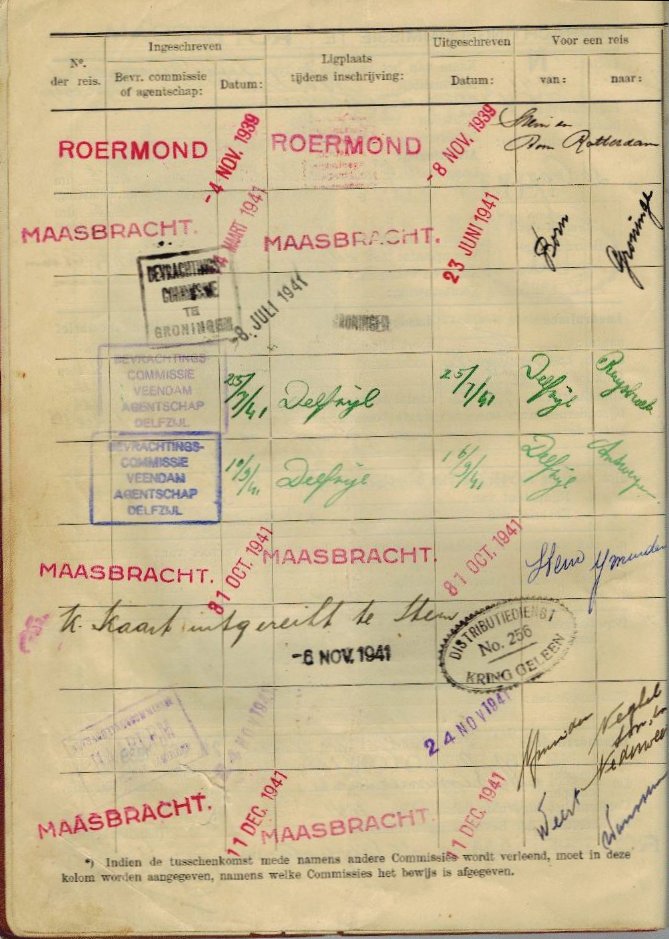 Ingeschreven
Uitgeschreven
Voor een reis
No.
der reis.
Bevr. commissie
of agentschap:
Datum:
Ligplaats
tijdens inschrijving:
Datum:
van:
naar:
ROERMOND
-4 NOV. 1939
ROERMOND
-8 NOV. 1939
Stein en
Born Rotterdam
MAASBRACHT.
MAART 1941
MAASBRACHT.
23 JUNI 1941
Born
Groninge
BEVRACHTINGS-
COMMISSIE
TE
GRONINGEN
-8. JULI 1941
GRONINGEN
BEVRACHTINGS-
COMMISSIE
VEENDAM
AGENTSCHAP
DELFZIJL
25/7/41
Delfzijl
25/7/41
Delfzijl
BEVRACHTINGS-
COMMISSIE
VEENDAM
AGENTSCHAP
DELFZIJL
10/9/41
Delfzijl
16/9/41
Delfzijl
Antwerpen
MAASBRACHT.
31 OCT. 1941
MAASBRACHT.
31 OCT. 1941
Stein
Ymuiden
K kaart uitgereikt te Stein
-6 NOV. 1941
DISTRIBUTIEDIENST
No. 256
KRING GELEEN
24 NOV 1941
24 NOV 1941
Ymuiden
Veghel
Son, en
Nederweert
MAASBRACHT.
11 DEC. 1941
MAASBRACHT.
11 DEC. 1941
Weert
*) Indien de tusschenkomst mede namens andere Commissies wordt verleend, moet in deze
kolom worden aangegeven, namens welke Commissies het bewijs is afgegeven.